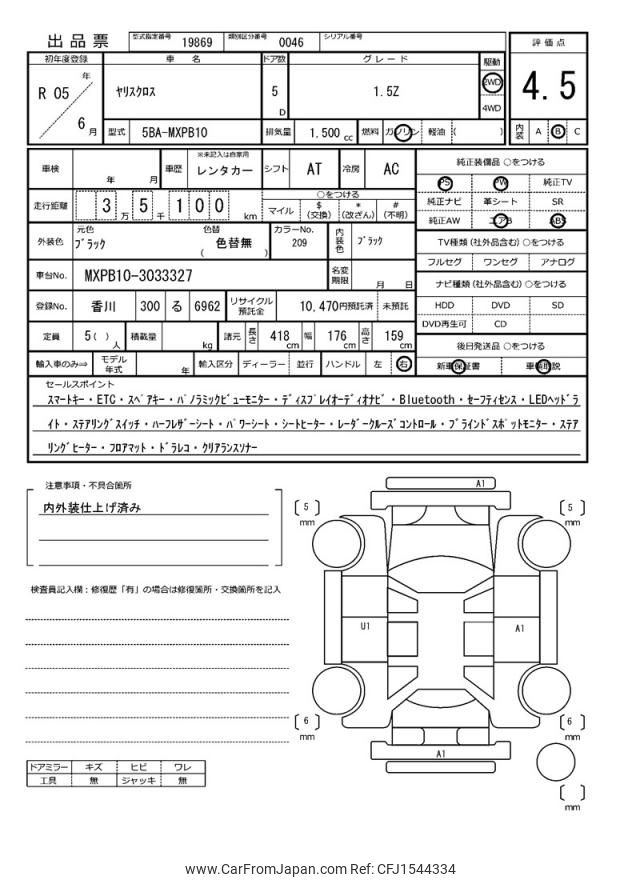 出品票 型式指定番号 19869 類別区分番号 0046 シリアル番号
評価点
4.5
内装 A B C
初年度登録 車名 ドア数 グレード 駆動
R 05 年 6 月 ヤリスクロス 5 D 1.5Z 2WD 4WD
型式 5BA-MXPB10 排気量 1.500 cc 燃料 ガソリン 軽油 ( )
車検 年 月 車歴 ※未記入は自家用 レンタカー シフト AT 冷房 AC
走行距離 3 万 5 千 1 0 0 km ○をつける
マイル $ (交換) * (改ざん) # (不明)
外装色 元色 ブラック 色替 色替無 ( ) カラーNo. 209 内装色 ブラック
車台No. MXPB10-3033327 名変期限 月 日
登録No. 香川 300 る 6962 リサイクル預託金 10.470円預託済 未預託
定員 5( ) 人 積載量 kg 諸元 長さ 418 cm 幅 176 cm 高さ 159 cm
輸入車のみ⇒ モデル年式 年 輸入区分 ディーラー 並行 ハンドル 左 右
純正装備品 ○をつける
PS PW 純正TV
純正ナビ 革シート SR
純正AW エアB ABS
TV種類 (社外品含む) ○をつける
フルセグ ワンセグ アナログ
ナビ種類 (社外品含む) ○をつける
HDD DVD SD
DVD再生可 CD
後日発送品 ○をつける
新車保証書 車輌取説
セールスポイント
スマートキー・ETC・スペアキー・パノラミックビューモニター・ディスプレイオーディオナビ・Bluetooth・セーフティセンス・LEDヘッドラ
イト・ステアリングスイッチ・ハーフレザーシート・パワーシート・シートヒーター・レーダークルーズコントロール・ブラインドスポットモニター・ステア
リングヒーター・フロアマット・ドラレコ・クリアランスソナー
注意事項・不具合箇所
内外装仕上げ済み
検査員記入欄：修復歴「有」の場合は修復箇所・交換箇所を記入
ドアミラー キズ ヒビ ワレ
工具 無 ジャッキ 無
A1
5 mm
5 mm
U1
A1
6 mm
6 mm
A1
mm
www.CarFromJapan.com Ref: CFJ1544334